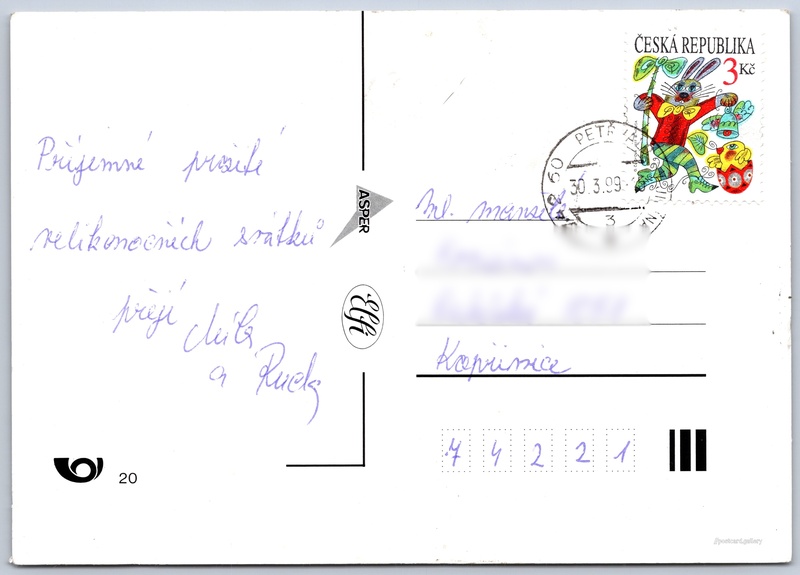 Příjemné prožité
velikonočních svátků
přejí Míla
a Ruda
20
ASPER
Elfi
ČESKÁ REPUBLIKA
3 Kč
30.3.99
3
ml. manželé
Kopřivnice
7 4 2 2 1